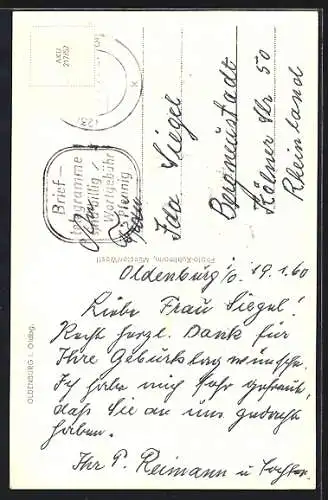 AKU
217/52
(23)
Brief-
telegramme
Wortgebühr
Pfennig
Frau
Ida Siegel
Bergneustadt
Kölner Str 50
Rheinland
Foto-Kuhlmann, Münster/Westf
OLDENBURG i. Oldbg.
Oldenburg i/O. 19.1.60
Liebe Frau Siegel!
Recht herzl. Dank für
Ihre Geburtstagwünsche.
Ich habe mich sehr gefreut,
daß Sie an uns gedacht
haben.
Ihr P. Reimann u Tochter.